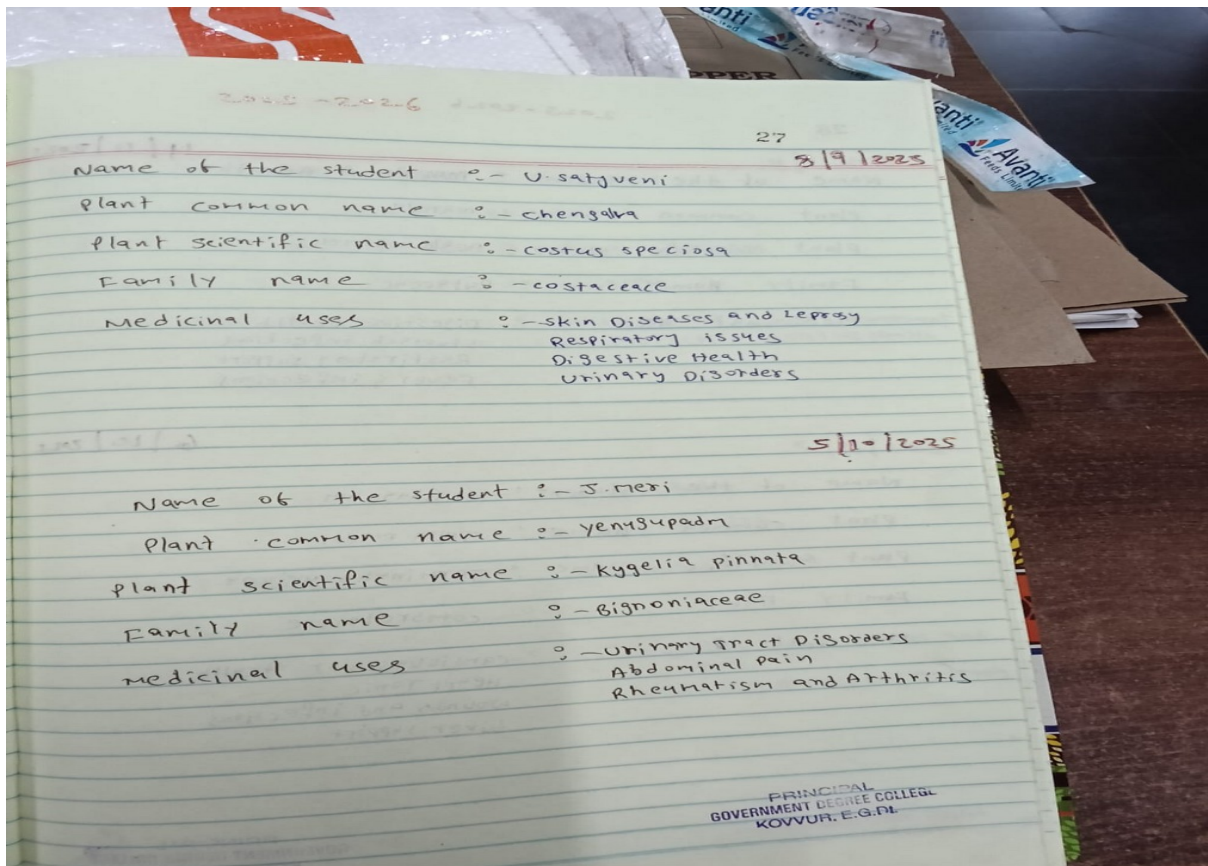 anti
PPER
Avanti
Feeds Limited
2025-2026
27
8/9/2025
Name of the student :- U. satyveni
Plant common name :- chengalva
Plant scientific name :- costus speciosa
Family name :- costaceace
Medicinal uses :- skin Diseases and Leprosy
Respiratory issues
Digestive Health
Urinary Disorders
5/10/2025
Name of the student :- J. meri
Plant common name :- yenugupadm
Plant scientific name :- Kygelia pinnata
Family name :- Bignoniaceae
medicinal uses :- Urinary Tract Disorders
Abdominal Pain
Rheumatism and Arthritis
PRINCIPAL
GOVERNMENT DEGREE COLLEGE
KOVVUR. E.G.Dt.